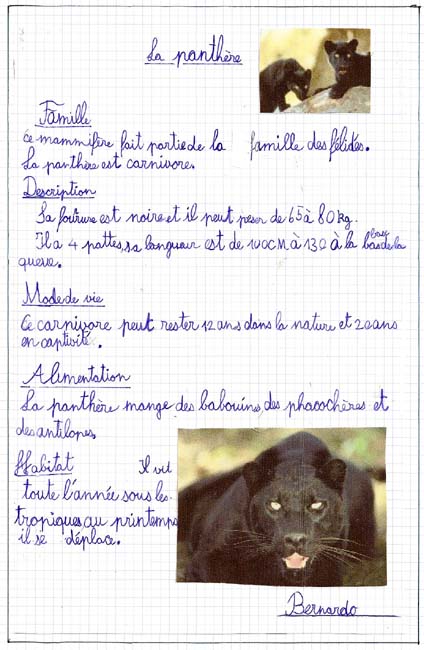 La panthère
Famille
Ce mammifère fait partie de la famille des félidés.
La panthère est carnivore.
Description
Sa fourure est noire et il peut peser de 65 à 80 kg.
Il a 4 pattes, sa longueur est de 100cm à 130 à la base de la
queue.
Mode de vie
Ce carnivore peut rester 12 ans dans la nature et 20 ans
en captivité.
Alimentation
La panthère mange des babouins, des phacochères et
des antilopes.
Habitat Il vit
toute l'année sous les
tropiques au printemps
il se déplace.
Bernardo